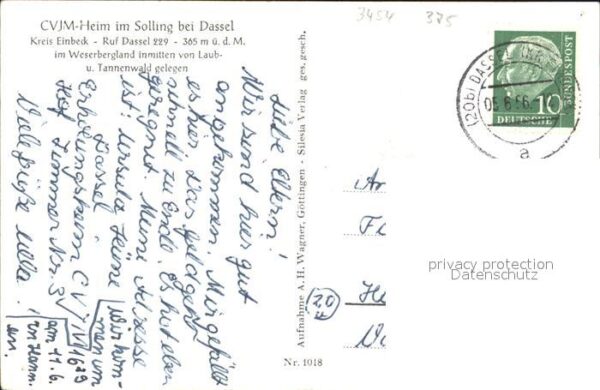 CVJM-Heim im Solling bei Dassel
Kreis Einbeck - Ruf Dassel 229 - 365 m ü. d. M.
im Weserbergland inmitten von Laub-
u. Tannenwald gelegen
3454 375
(20b) DASSEL
05.6.56.
a
10
DEUTSCHE
BUNDESPOST
Liebe Eltern!
Wir sind hier gut
angekommen. Mir gefällt
es hier. Das Geld geht
schnell zu Ende. Es hat eben
geregnet. Meine Adresse
ist: Ursula Heine
Dassel
Erholungsheim CVJM
Hof Zimmer Nr. 3
Viele Grüße Ulla.
Wir kom-
men um
16
am 11.6.
in Hann.
an.
Aufnahme A. H. Wagner, Göttingen - Silesia Verlag ges. gesch.
Nr. 1018
(20
privacy protection
Datenschutz